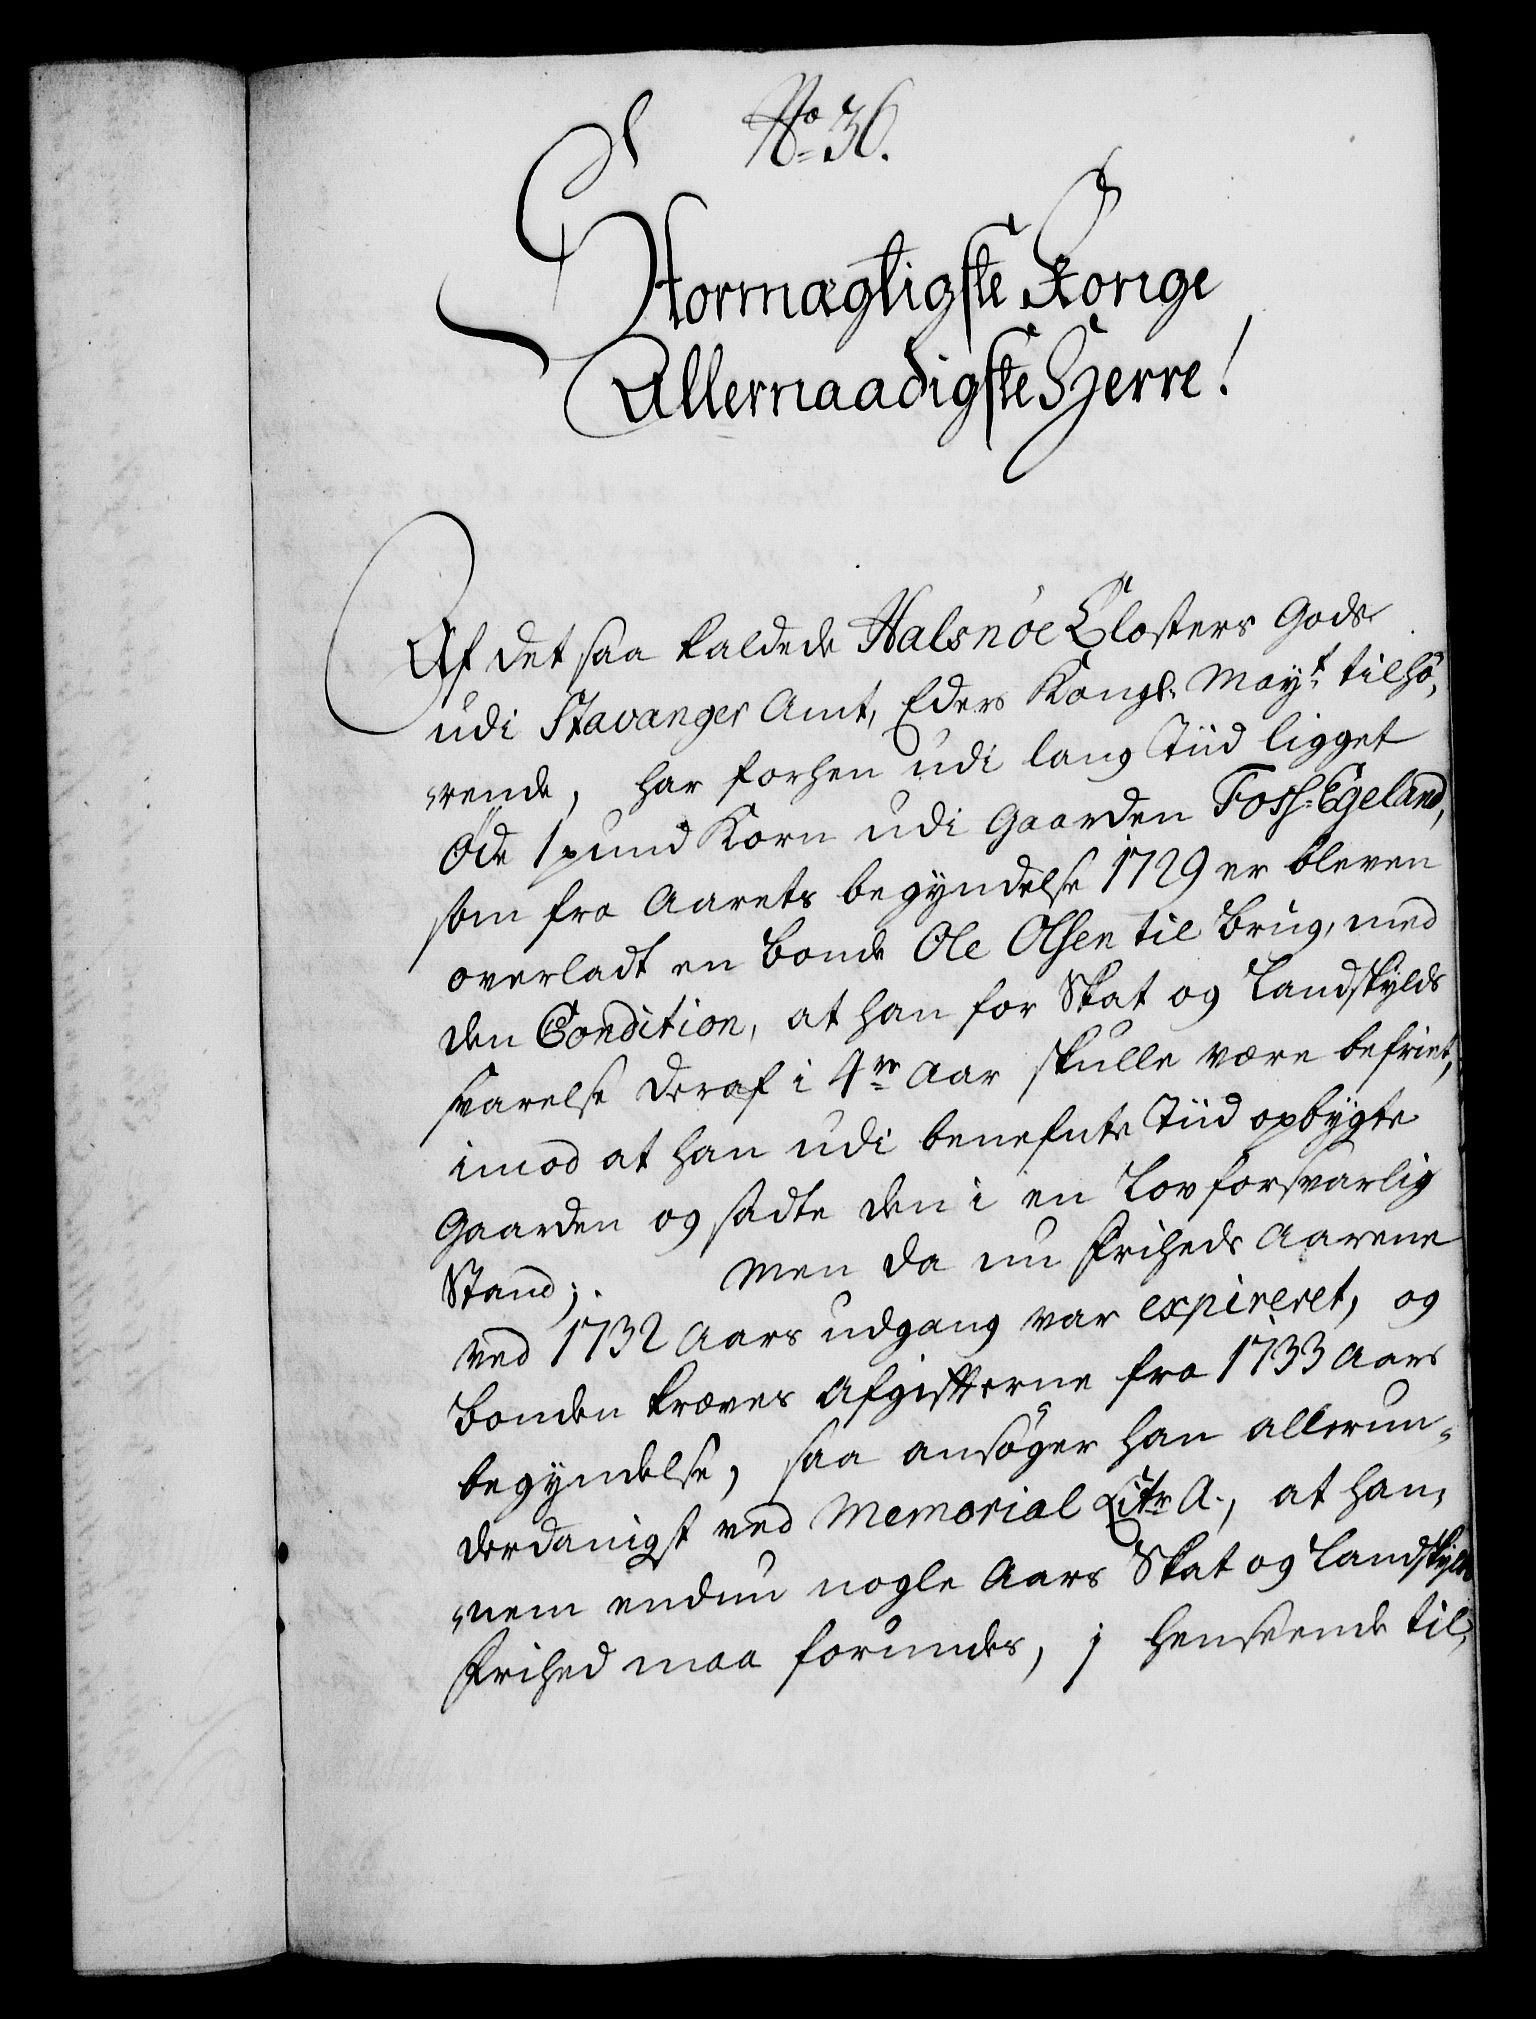 No 36.
Stormægtigste Konge
Allernaadigste Herre!
Af det saa kaldede Halsnöe Closters Gods
udi Stavanger Amt, Eders Kongl. Mayt. tilhö„
„rende, har forhen udi lang Tiid ligget
Öde 1 pund Korn udi Gaarden Foss-Egeland,
som fra Aarets begyndelse 1729 er bleven
overladt en Bonde Ole Olsen til Brug, med
den Condition, at han for Skat og Landskylds
svarelse deraf i 4re Aar skulle være befriet,
imod at han udi benefnte Tiid opbygte
Gaarden og sadte den i en Lovforsvarlig
Stand; Men da nu Friheds Aarene
ved 1732 Aars udgang var expireret, og
Bonden kræves Afgifterne fra 1733 Aars
begyndelse, saa ansöger han allerun„
derdanigst ved Memorial Litr A., at han„
„nem endnu nogle Aars Skat og Landskylds
Frihed maa forundes, j henseende til,